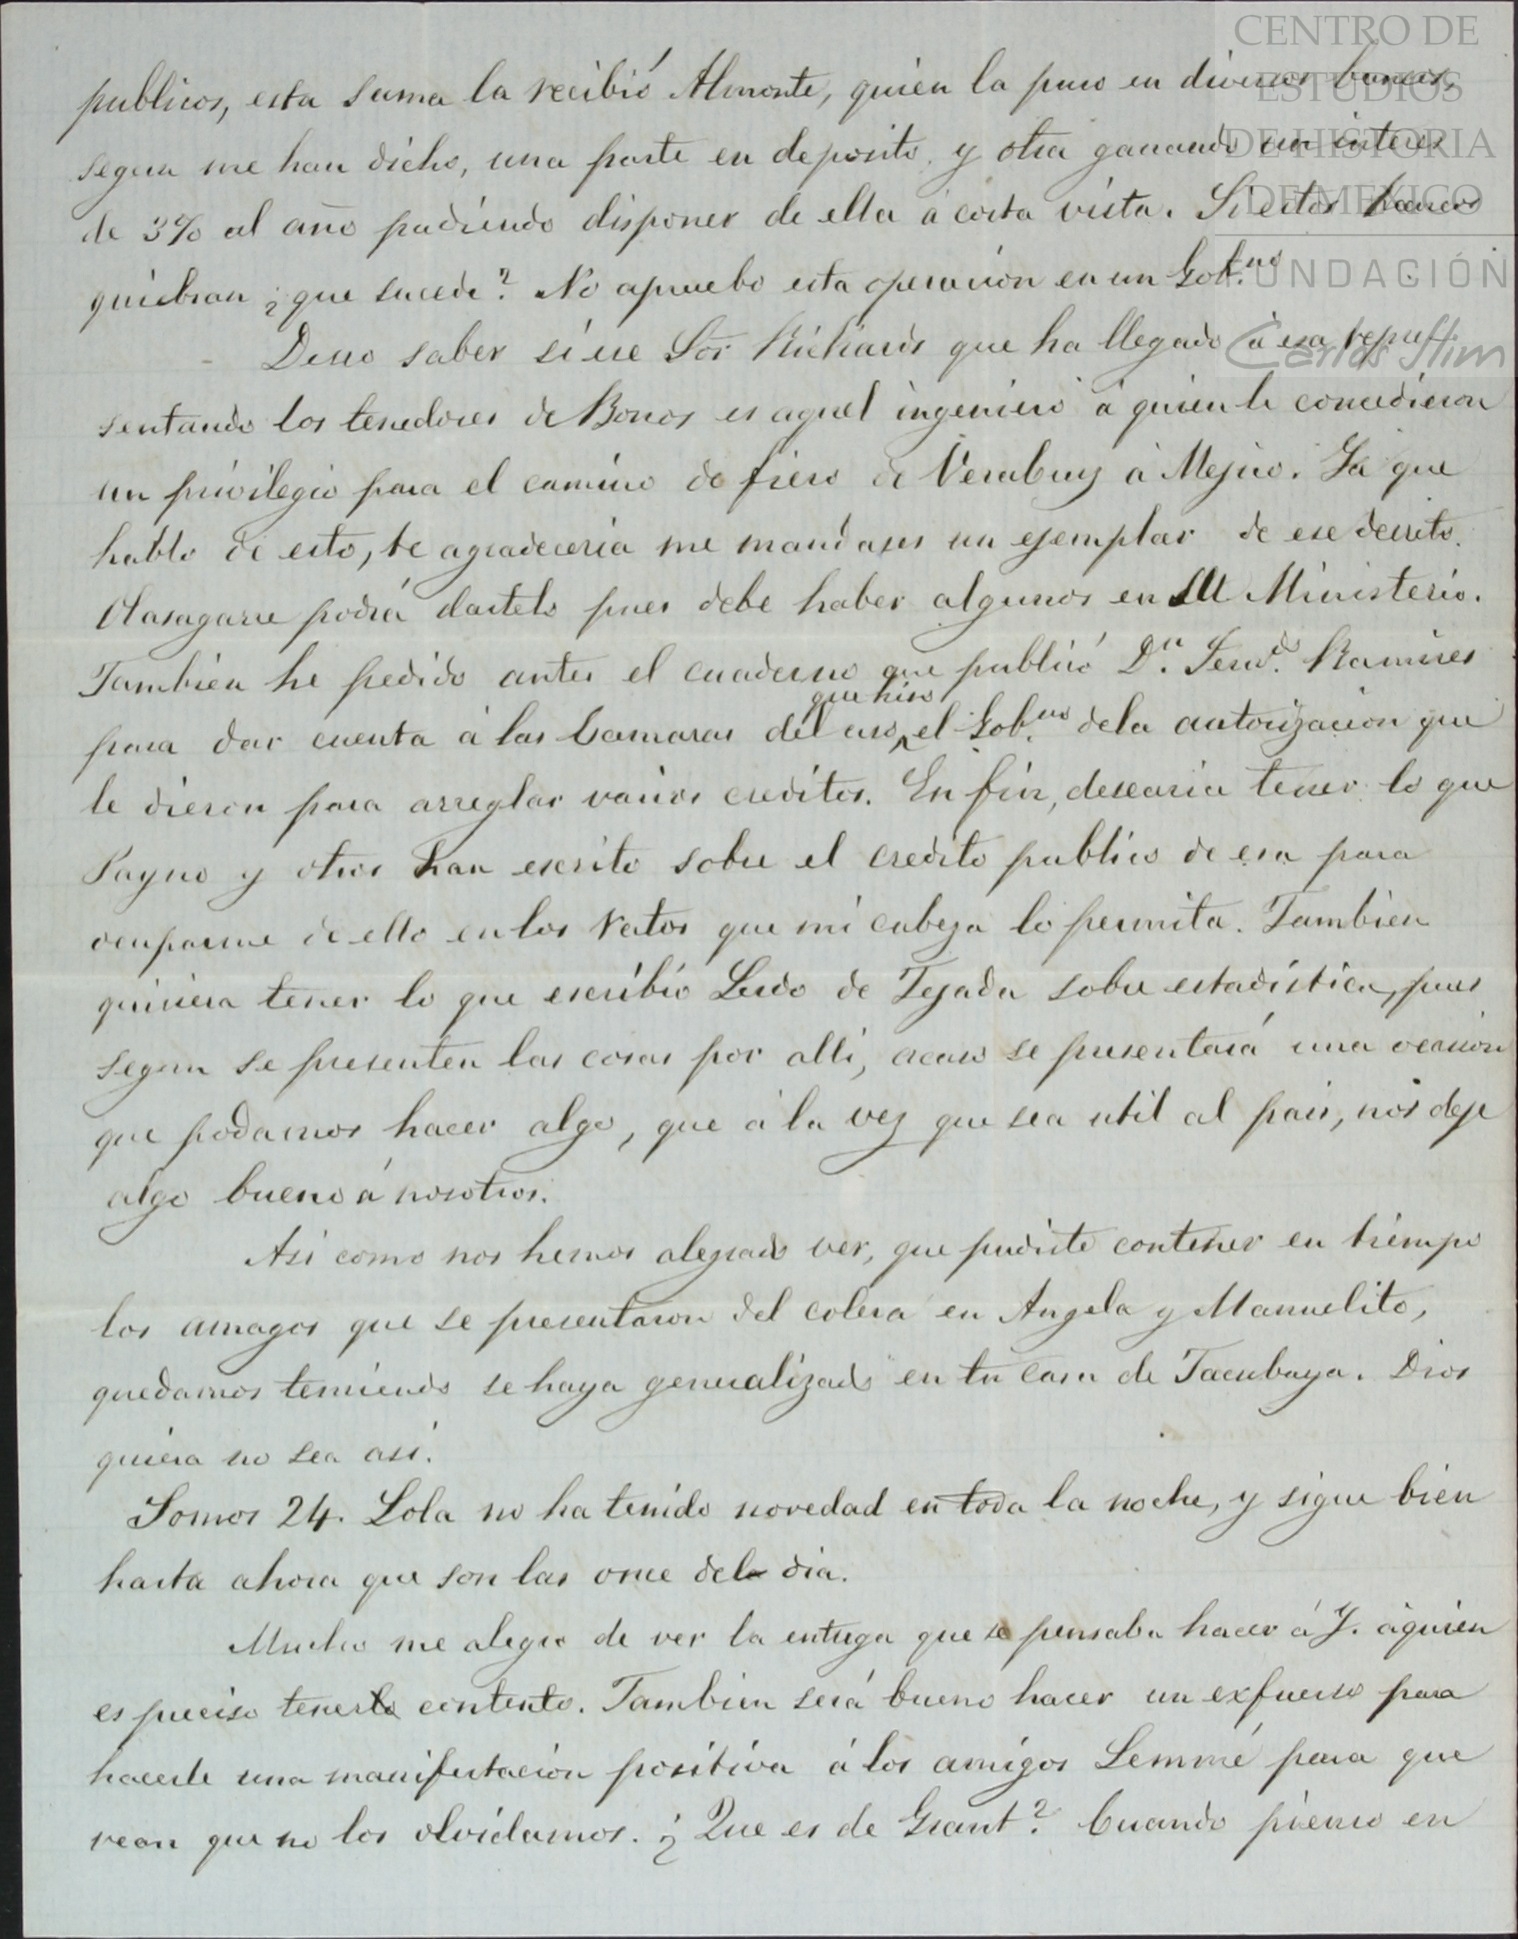 CENTRO DE
ESTUDIOS
DE HISTORIA
DE MÉXICO
FUNDACIÓN
Carlos Slim
publicos, esta suma la recibió Almonte, quien la puso en diversos bancos,
segun me han dicho, una parte en deposito y otra ganando un interes
de 3% al año pudiendo disponer de ella á corta vista. Si estos bancos
quiebran ¿que sucede? No apruebo esta operacion en un Gob.no
Deseo saber si ese Sor Richards que ha llegado á esa repre-
sentando los tenedores de Bonos es aquel ingeniero á quien le concedieron
un privilegio para el camino de fierro de Veracruz á Mejico. Ya que
hablo de esto, te agradeceria me mandases un ejemplar de ese decreto.
Olasagarre podrá dartelo pues debe haber algunos en su Ministerio.
Tambien he pedido antes el cuaderno que publicó Dn. Fernd.o Ramires
para dar cuenta á las Camaras del uso que hiso el Gob.no dela autorizacion que
le dieron para arreglar varios creditos. En fin, desearia tener lo que
Payno y otros han escrito sobre el credito publico de esa para
ocuparme de ello en los ratos que mi cabeza lo permita. Tambien
quisiera tener lo que escribió Lerdo de Tejada sobre estadistica, pues
segun se presenten las cosas por allí, acaso se presentará una ocasion
que podamos hacer algo, que á la vez que sea util al pais, nos deje
algo bueno á nosotros.
Asi como nos hemos alegrado ver, que pudiste contener en tiempo
los amagos que se presentaron del colera en Angela y Manuelito,
quedamos temiendo se haya generalizado en tu casa de Tacubaya. Dios
quiera no sea asi.
Somos 24. Lola no ha tenido novedad en toda la noche, y sigue bien
hasta ahora que son las once del dia.
Mucho me alegro de ver la entrega que se pensaba hacer á Y. á quien
es preciso tenerlo contento. Tambien será bueno hacer un exfuerso para
hacerle una manifestacion positiva á los amigos Lemmé para que
vean que no los olvidamos. ¿Que es de Grant? Cuando pienso en